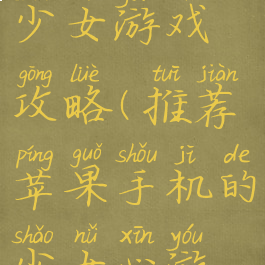 少女游戏
gōng lüè tuī jiàn
攻略(推荐
píng guǒ shǒu jī de
苹果手机的
shǎo nǚ xīn yóu